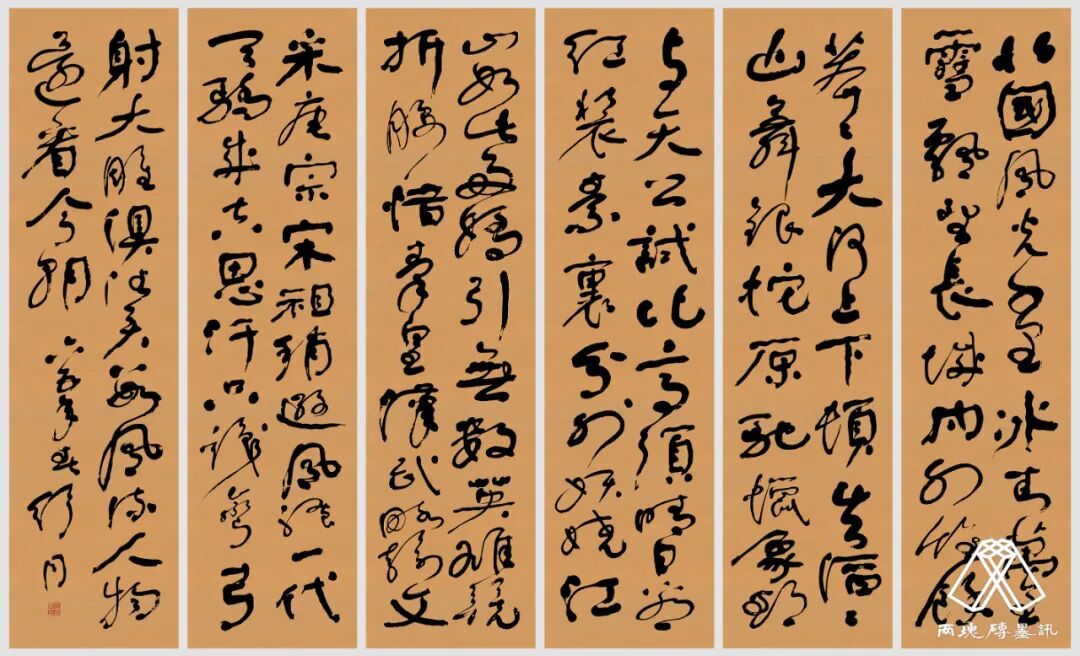 北國風光千里冰封萬里
雪飄望長城內外惟餘
莽〻大河上下頓失滔〻
山舞銀蛇原馳蠟象欲
与天公試比高須晴日看
红裝素裹分外妖嬈江
山如此多嬌引無數英雄競
折腰惜秦皇漢武略輸文
采唐宗宋祖稍遜風騷一代
天驕成吉思汗只識彎弓
射大雕俱往矣數風流人物
還看今朝
年春舒同
两塊磚墨訊